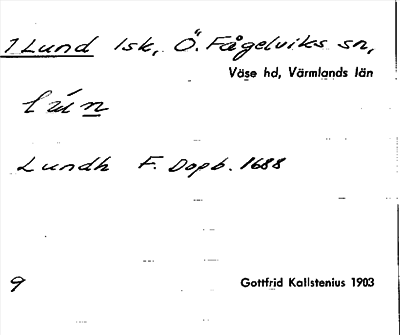 1 Lund 1sk, Ö. Fågelviks sn,
Väse hd, Värmlands län
lún
Lundh F. Dopb. 1688
9
Gottfrid Kallstenius 1903